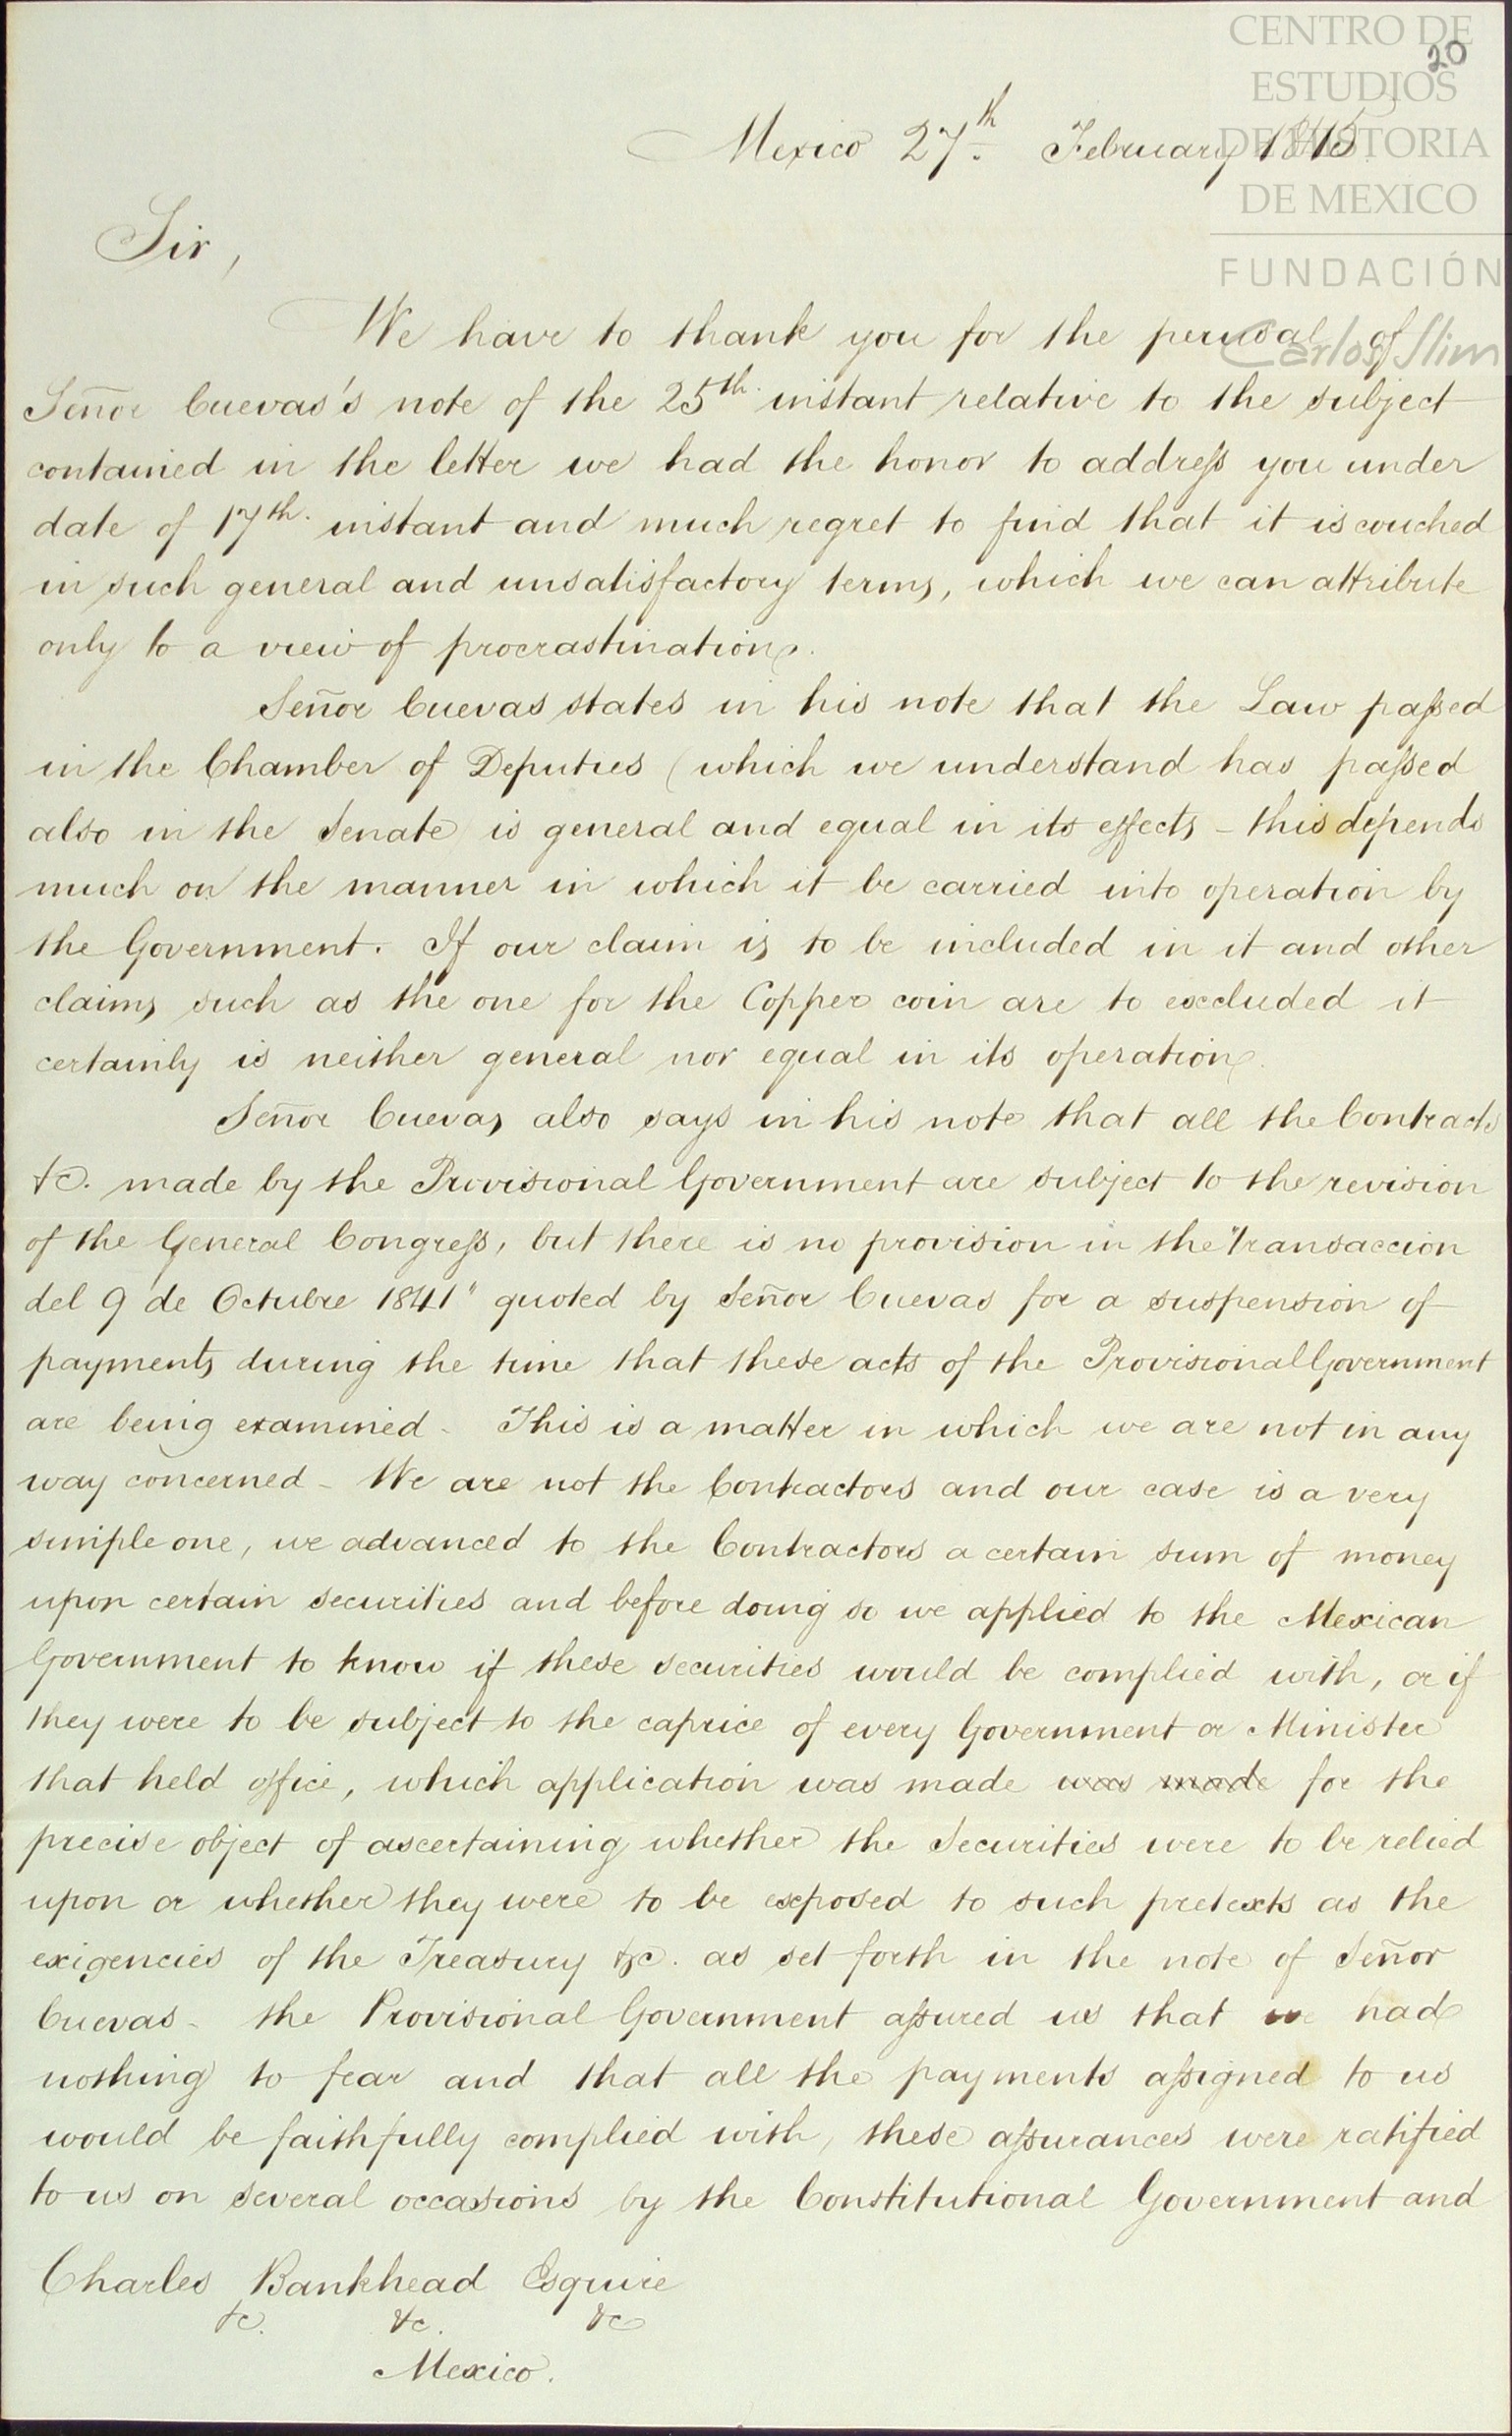 CENTRO DE
20
ESTUDIOS
DE HISTORIA
DE MEXICO
FUNDACIÓN
Carlos Slim
Mexico 27th. February 1845.
Sir,
We have to thank you for the perusal of
Señor Cuevas's note of the 25th. instant relative to the subject
contained in the letter we had the honor to address you under
date of 17th. instant and much regret to find that it is couched
in such general and unsatisfactory terms, which we can attribute
only to a view of procrastination.
Señor Cuevas states in his note that the Law passed
in the Chamber of Deputies (which we understand has passed
also in the Senate is general and equal in its effects – this depends
much on the manner in which it be carried into operation by
the Government. If our claim is to be included in it and other
claims such as the one for the Copper coin are to excluded it
certainly is neither general nor equal in its operation.
Señor Cuevas also says in his note that all the Contracts
&c. made by the Provisional Government are subject to the revision
of the General Congress, but there is no provision in the "transaccion
del 9 de Octubre 1841" quoted by Señor Cuevas for a suspension of
payments during the time that these acts of the Provisional Government
are being examined – This is a matter in which we are not in any
way concerned – We are not the Contractors and our case is a very
simple one, we advanced to the Contractors a certain sum of money
upon certain securities and before doing so we applied to the Mexican
Government to know if these securities would be complied with, or if
they were to be subject to the caprice of every Government or Minister
that held office, which application was made was made for the
precise object of ascertaining whether the Securities were to be relied
upon or whether they were to be exposed to such pretexts as the
exigencies of the Treasury &c. as set forth in the note of Señor
Cuevas – the Provisional Government assured us that we had
nothing to fear and that all the payments assigned to us
would be faithfully complied with, these assurances were ratified
to us on several occasions by the Constitutional Government and
Charles Bankhead Esquire
&c. &c. &c
Mexico.